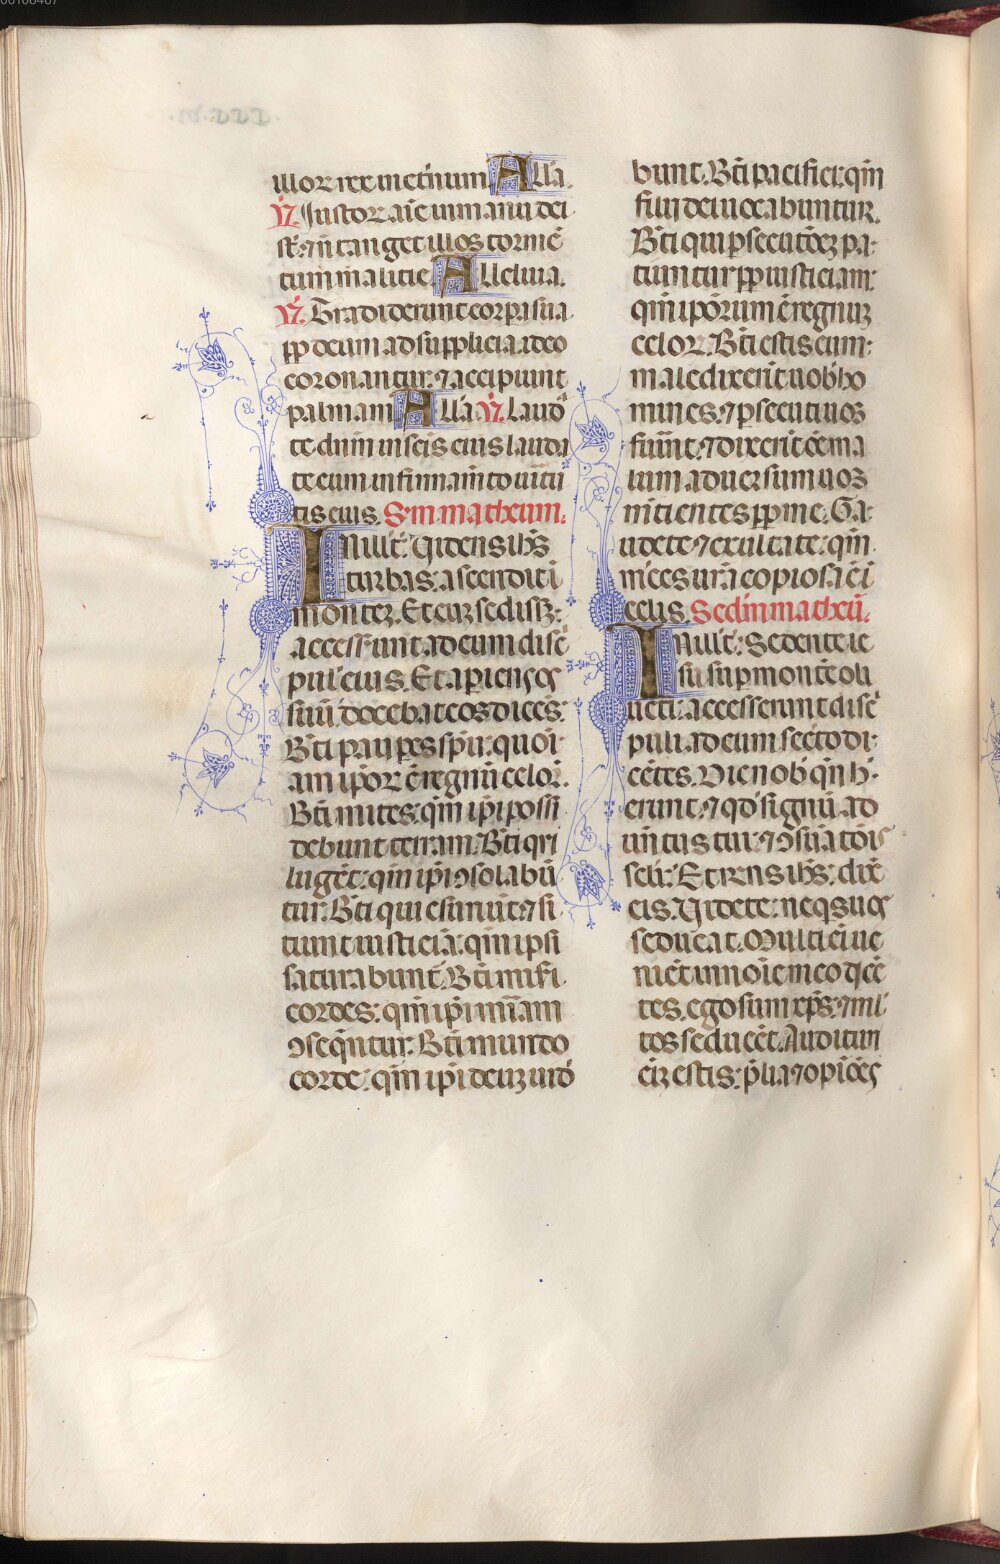 illoꝝ rex in et̄num. Alla.
℣. Iustoꝝ aīe in manu dei
st̄: ⁊ nō tanget illos tormē
tum malitie. Alleluia.
℣. Tradiderunt corpa sua
pp deum ad supplicia. ideo
coronantur. ⁊ accipiunt
palmam. Alla. ℣. Laudā
te dnm in scīs eius. lauda
te eum in firmam̄to uirtu
tis eius. S. m matheum.
In illo t̄. Videns ihs̄
turbas: ascendit ī
montez. Et cuz sedissꝫ:
accesserunt ad eum disc̄
puli eius. Et apiens os
suū. docebat eos dicēs:
Bt̄i paupes spū: quoi
am ipoꝝ ē regnū celoꝝ.
Bt̄i mites: qm̄ ip̄i possi
debunt terram. Bt̄i qui
lugēt: qm̄ ip̄i ꝯsolabū
tur. Bt̄i qui esuriūt ⁊ si
tiunt iusticiā: qm̄ ipsi
saturabunt̄. Bt̄i mis̄i
cordes: qm̄ ip̄i mīam
ꝯseqn̄tur. Bt̄i mundo
corde: qm̄ ip̄i deuz uidē
bunt. Bt̄i pacifici: qm̄
filij dei uocabuntur.
Bt̄i qui psecutōez pa
tiuntur pp iusticiam:
qm̄ ip̄orum ē regnuz
celoꝝ. Bt̄i estis cum:
maledixerīt uob̄ ho
mines: ⁊ psecuti uos
fuīnt: ⁊ dixerīt ōē ma
lum aduersum uos
mītientes pp me. Ga
udete ⁊ exultate: qm̄
m̄ces ur̄a copiosa ē ī
celis. Sedm̄ matheū.
In illo t̄. Sedente ie
su sup montē oli
ueti: accesserunt disc̄
puli ad eum sec̄to di
cētes. Dic nob̄ qn̄ h̄
erunt: ⁊ qd̄ signū ad
uētus tui: ⁊ ꝯsūatōis
scl̄i. Et rn̄s ihs̄: dix̄
eis. Videte: neqs uos
seducat. Multi ēi ue
nient in noīe meo dicē
tes. ego sum xp̄s: ⁊ ml̄
tos seducēt. Audituri
ēiz estis: p̄lia ⁊ opiōes